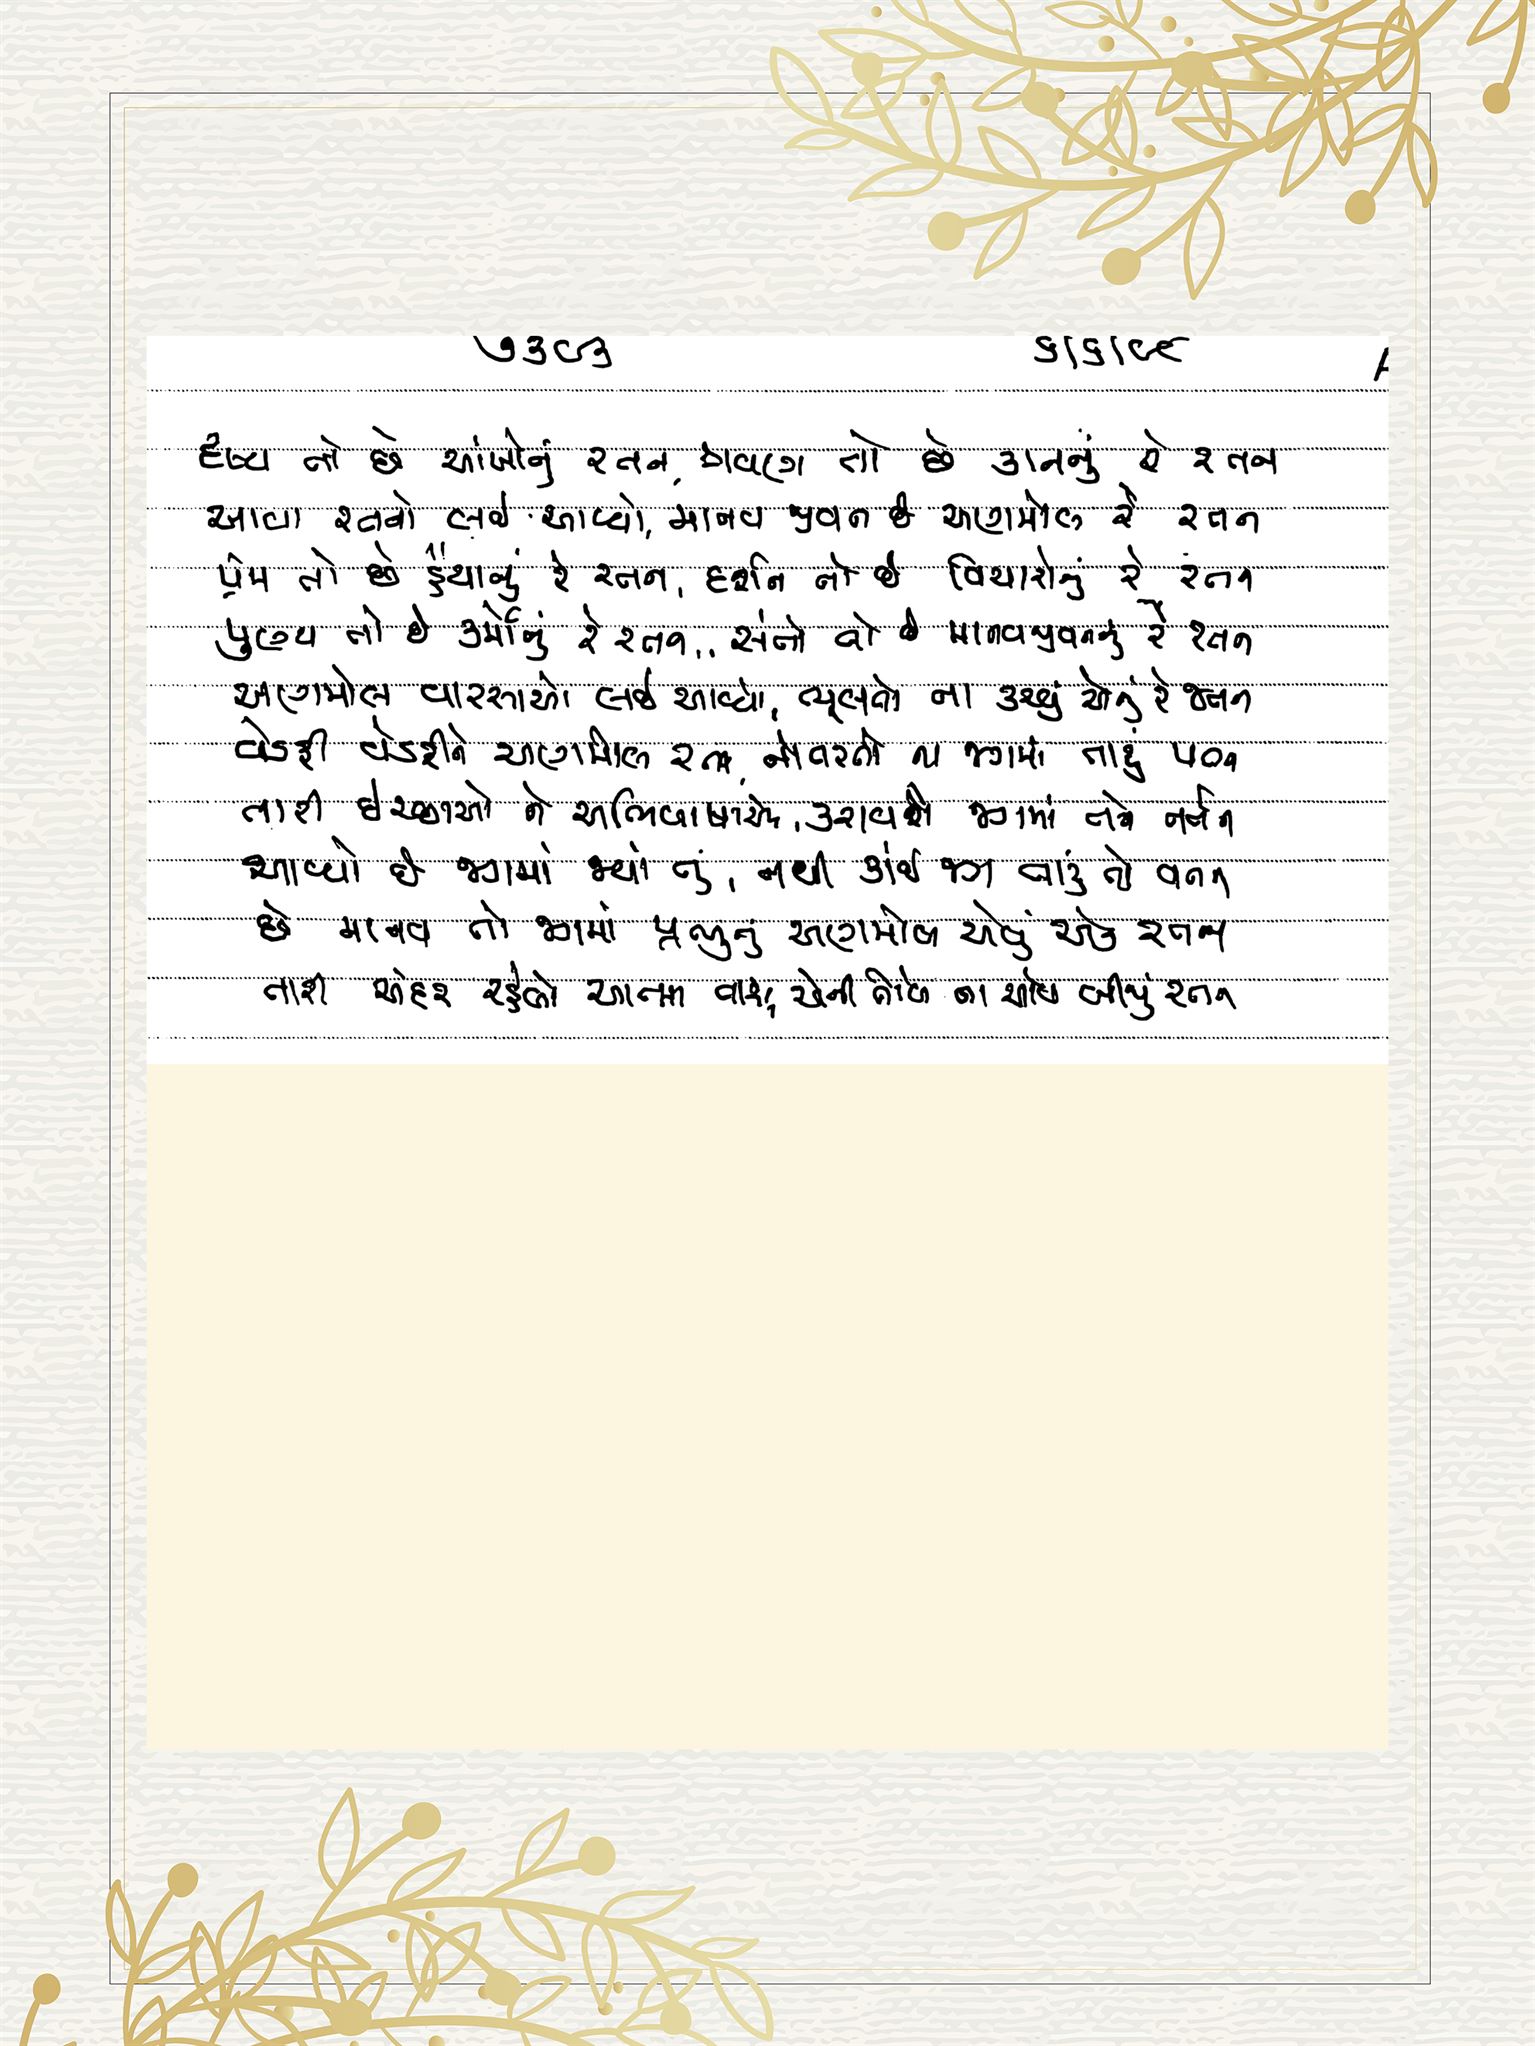 ૭૩૯૩ ૬/૬/૯૮
દૃષ્ય તો છે આંખોનું રતન, શ્રવણ તો છે કાનનું રે રતન
આવા રતનો લઈ આવ્યો, માનવ જીવન છે અણમોલ રે રતન
પ્રેમ તો છે હૈયાનું રે રતન, દર્શન તો છે વિચારોનું રે રતન
પુણ્ય તો છે કર્મોનું રે રતન, સંતો તો છે માનવજીવનનું રે રતન
અણમોલ વારસાઓ લઈ આવ્યો, ભૂલતો ના કરવું એનું રે જતન
વેડફી વેડફીને અણમોલ રતન, નોતરતો ના જગમાં તારું પતન
તારી ઇચ્છાઓ ને અભિલાષાઓ, કરાવશે જગમાં તને નર્તન
આવ્યો છે જગમાં જ્યાં તું, નથી કાંઈ જગ તારું તો વતન
છે માનવ તો જગમાં પ્રભુનું અણમોલ એવું એક રતન
તારી અંદર રહેલો આત્મા તારો, એની તોલે ના આવે બીજું રતન